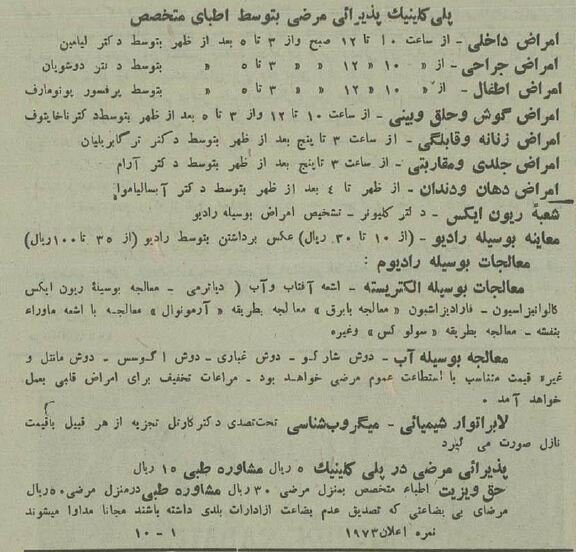 پلی کلینیك پذیرائی مرضی بتوسط اطبای متخصص
امراض داخلی - از ساعت ۱۰ تا ۱۲ صبح واز ۳ تا ۵ بعد از ظهر بتوسط دکتر لیامین
امراض جراحی - از « ۱۰ « ۱۲ « « ۳ تا ۵ « « بتوسط دکتر دوشویان
امراض اطفال - از « ۱۰ « ۱۲ « « ۳ تا ۵ « « بتوسط پرفسور پونومارف
امراض گوش وحلق وبینی - از ساعت ۱۰ تا ۱۲ واز ۳ تا ۵ بعد از ظهر بتوسط دکتر ناخایتوف
امراض زنانه وقابلگی - از ساعت ۳ تا پنج بعد از ظهر بتوسط دکتر نرگابریلیان
امراض جلدی ومقاربتی - از ساعت ۳ تا پنج بعد از ظهر بتوسط دکتر آرام
امراض دهان ودندان - از ظهر تا ٤ بعد از ظهر بتوسط دکتر آبسالیاموا
شعبهٔ ریون ایکس - دکتر کلیونر - تشخیص امراض بوسیله رادیو
معاینه بوسیله رادیو - (از ۱۰ تا ۳۰ ریال) عکس برداشتن بتوسط رادیو (از ۳۵ تا ۱۰۰ ریال)
معالجات بوسیله رادیوم :
معالجات بوسیله الکتریسته - اشعه آفتاب وآب ( دیاترمی - معالجه بوسیلهٔ ریون ایکس
کالوانیزاسیون - فارادیزاشیون « معالجه بابرق » معالجه بطریقه « آرمونوال » معالجه با اشعه ماوراء
بنفشه - معالجه بطریقه « سولو کس » وغیره
معالجه بوسیله آب - دوش شارکو - دوش غباری - دوش اگوسس - دوش مانتل و
غیره قیمت متناسب با استطاعت عموم مرضی خواهد بود - مراعات تخفیف برای امراض قلبی بعمل
خواهد آمد .
لابراتوار شیمیائی - میگروب شناسی تحت تصدی دکتر کارتل تجزیه از هر قبیل باقیمت
نازل صورت می گیرد
پذیرائی مرضی در پلی کلینیك ۵ ریال مشاوره طبی ۱۵ ریال
حق ویزیت اطباء متخصص بمنزل مرضی ۳۰ ریال مشاوره طبی درمنزل مرضی ۵۰ ریال
مرضای بی بضاعتی که تصدیق عدم بضاعت ازادارات بلدی داشته باشند مجانا مداوا میشوند
نمره اعلان ۱۹۷۳ ۱ - ۱۰